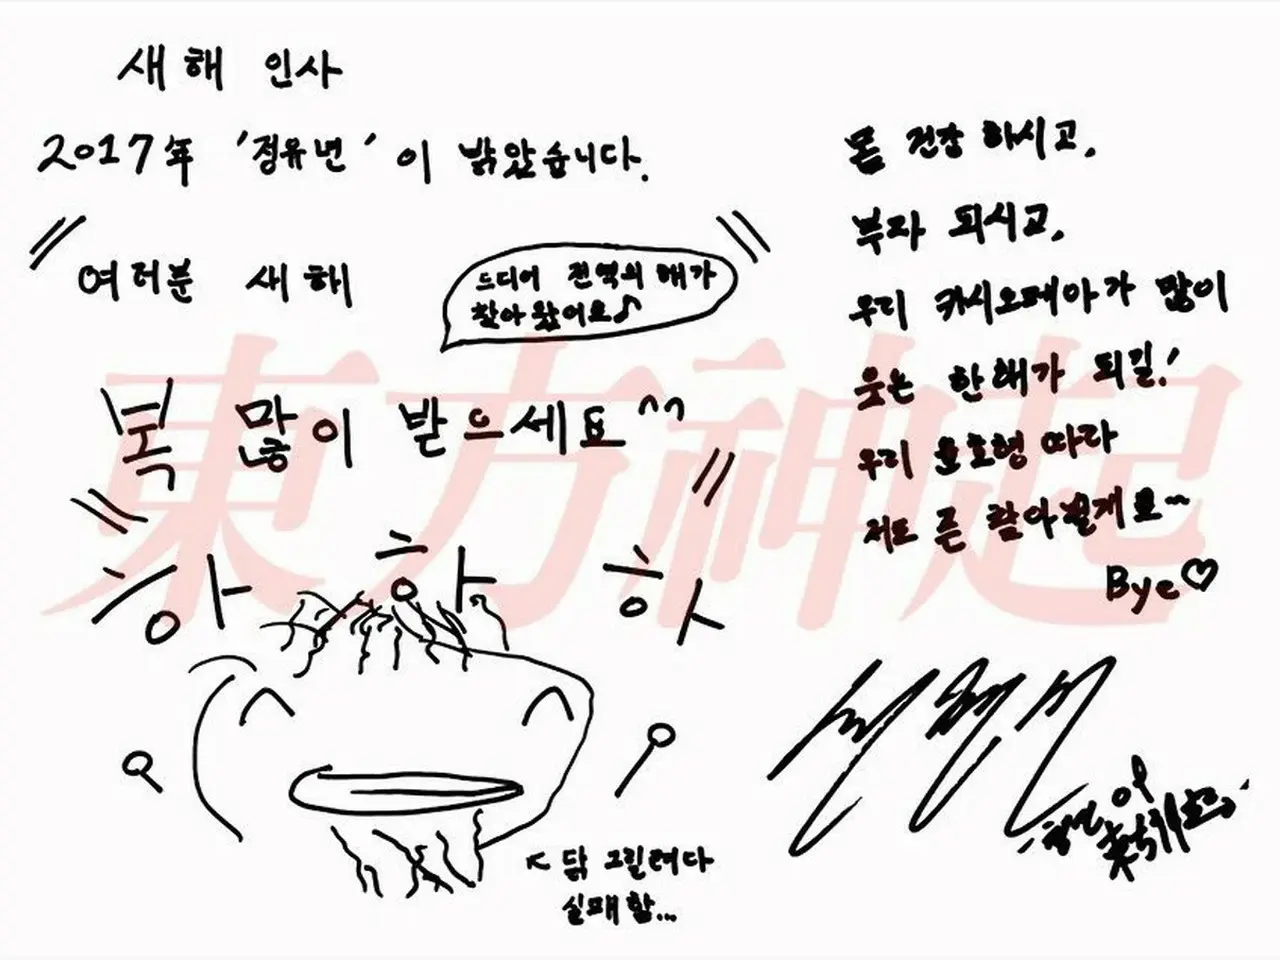 새해 인사
2017年 '정유년'이 밝았습니다.
여러분 새해
드디어 전역의 해가
찾아왔어요♪
복 많이 받으세요^^
하 하 하
↖ 닭 그릴려다
실패함...
몸 건강 하시고,
부자 되시고,
우리 카시오페아가 많이
웃는 한해가 되길!
우리 윤호형 따라
저도 곧 찾아뵐게요~
Bye♡
東方神起